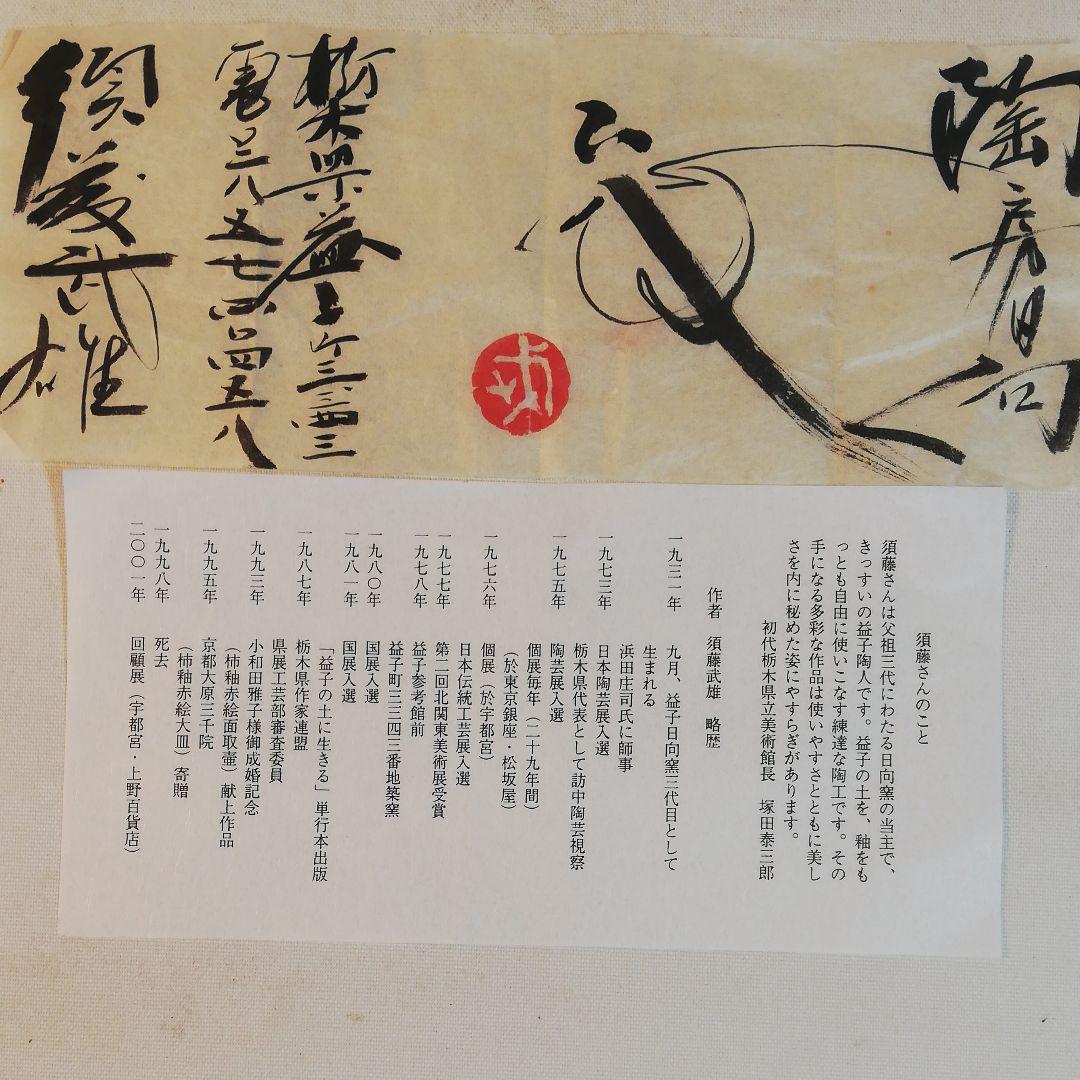 陶房日向
栃木県益子町三三四三
電〇二八五七二四四五八
須藤武雄
須藤さんのこと
須藤さんは父祖三代にわたる日向窯の当主で、
きっすいの益子陶人です。益子の土を、釉をも
っとも自由に使いこなす練達な陶工です。その
手になる多彩な作品は使いやすさとともに美し
さを内に秘めた姿にやすらぎがあります。
初代栃木県立美術館長 塚田泰三郎
作者 須藤武雄 略歴
一九三一年 九月、益子日向窯三代目として
生まれる
浜田庄司氏に師事
一九七三年 日本陶芸展入選
栃木県代表として訪中陶芸視察
一九七五年 陶芸展入選
個展毎年(二十九年間)
(於東京銀座・松坂屋)
一九七六年 個展(於宇都宮)
日本伝統工芸展入選
一九七七年 第二回北関東美術展受賞
一九七八年 益子参考館前
益子町三三四三番地築窯
一九八〇年 国展入選
一九八一年 国展入選
「益子の土に生きる」単行本出版
一九八七年 栃木県作家連盟
県展工芸部審査委員
一九九三年 小和田雅子様御成婚記念
(柿釉赤絵面取壷)献上作品
一九九五年 京都大原三千院
(柿釉赤絵大皿)寄贈
一九九八年 死去
二〇〇一年 回顧展(宇都宮・上野百貨店)